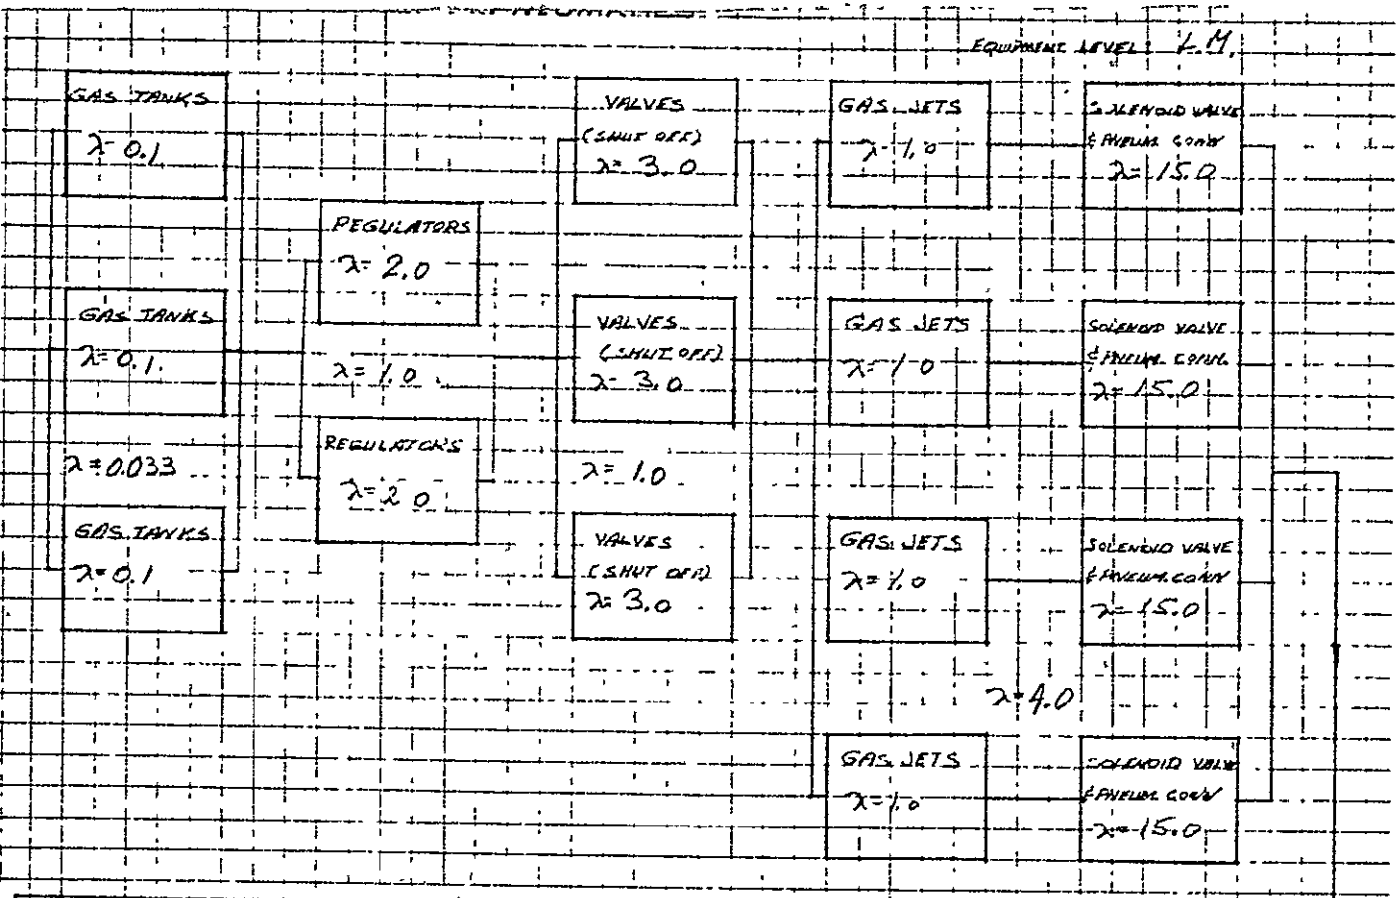 PNEUMATIC
EQUIPMENT LEVEL: L.M.
GAS TANKS
λ= 0.1
GAS TANKS
λ= 0.1
λ= 0.033
GAS TANKS
λ= 0.1
REGULATORS
λ= 2.0
λ= 1.0
REGULATORS
λ= 2.0
VALVES
(SHUT OFF)
λ= 3.0
VALVES
(SHUT OFF)
λ= 3.0
λ= 1.0
VALVES
(SHUT OFF)
λ= 3.0
GAS JETS
λ= 1.0
GAS JETS
λ= 1.0
GAS JETS
λ= 1.0
λ= 4.0
GAS JETS
λ= 1.0
SOLENOID VALVE
& PNEUM. CONN
λ= 15.0
SOLENOID VALVE
& PNEUM. CONN.
λ= 15.0
SOLENOID VALVE
& PNEUM. CONN
λ= 15.0
SOLENOID VALVE
& PNEUM. CONN
λ= 15.0